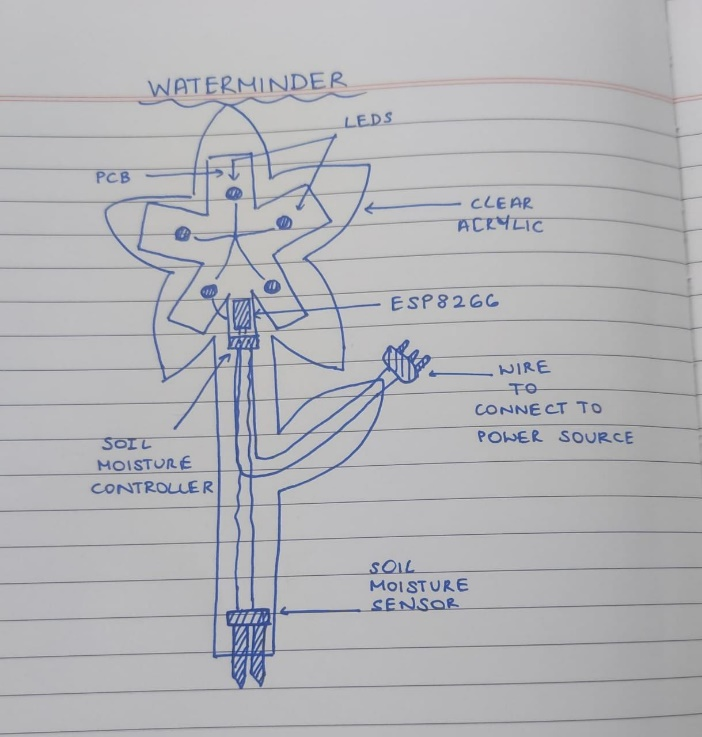 WATERMINDER
LEDS
PCB
CLEAR
ACRYLIC
ESP8266
WIRE
TO
CONNECT TO
POWER SOURCE
SOIL
MOISTURE
CONTROLLER
SOIL
MOISTURE
SENSOR